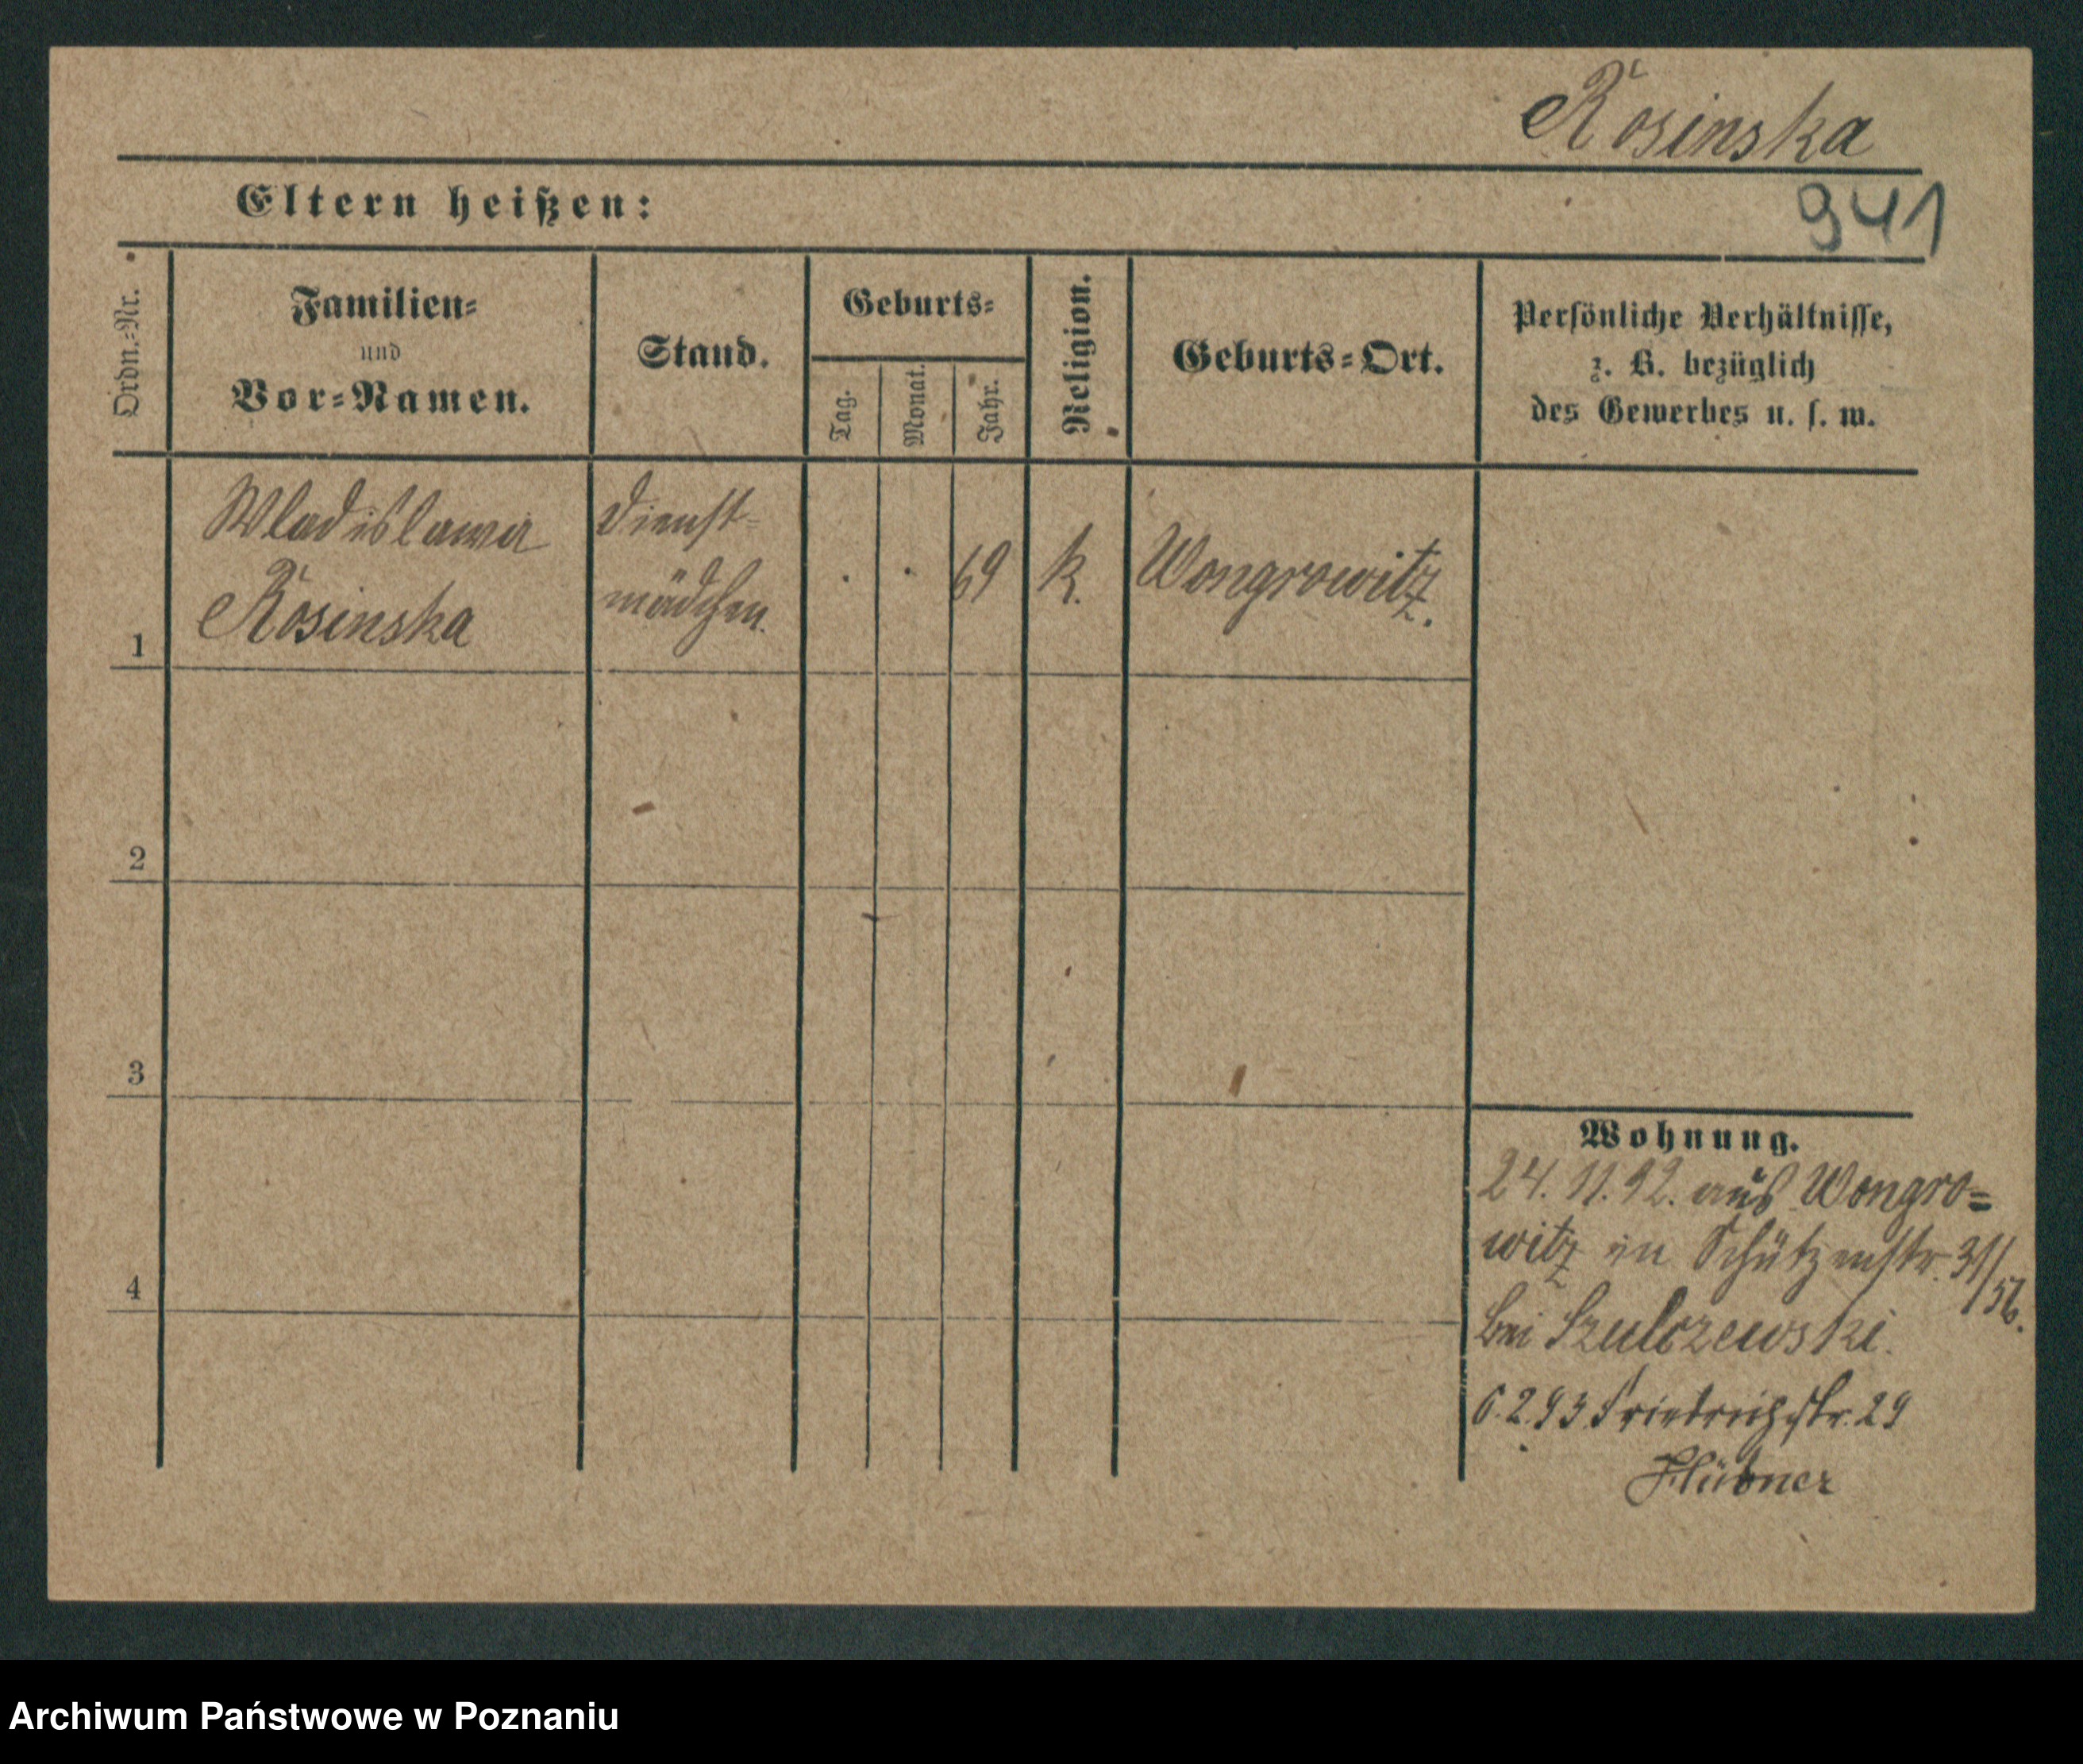 Rosinska
Eltern heißen:
941
Ordn.-Nr.
Familien-
und
Vor-Namen.
Stand.
Geburts-
Tag.
Monat.
Jahr.
Religion.
Geburts-Ort.
Persönliche Verhältnisse,
z. B. bezüglich
des Gewerbes u. s. w.
Wladislawa
Rosinska
Dienst-
mädchen.
69
k.
Wongrowitz.
1
2
3
4
Wohnung.
24. 11. 92. aus Wongro=
witz in Schützenstr. 31/
bei Szulczewski.
6. 2. 93 Friedrichstr. 29
Hübner
Archiwum Państwowe w Poznaniu